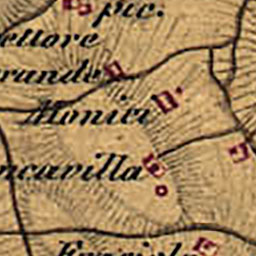 pic.
ettore
rande
Monici
ncavilla